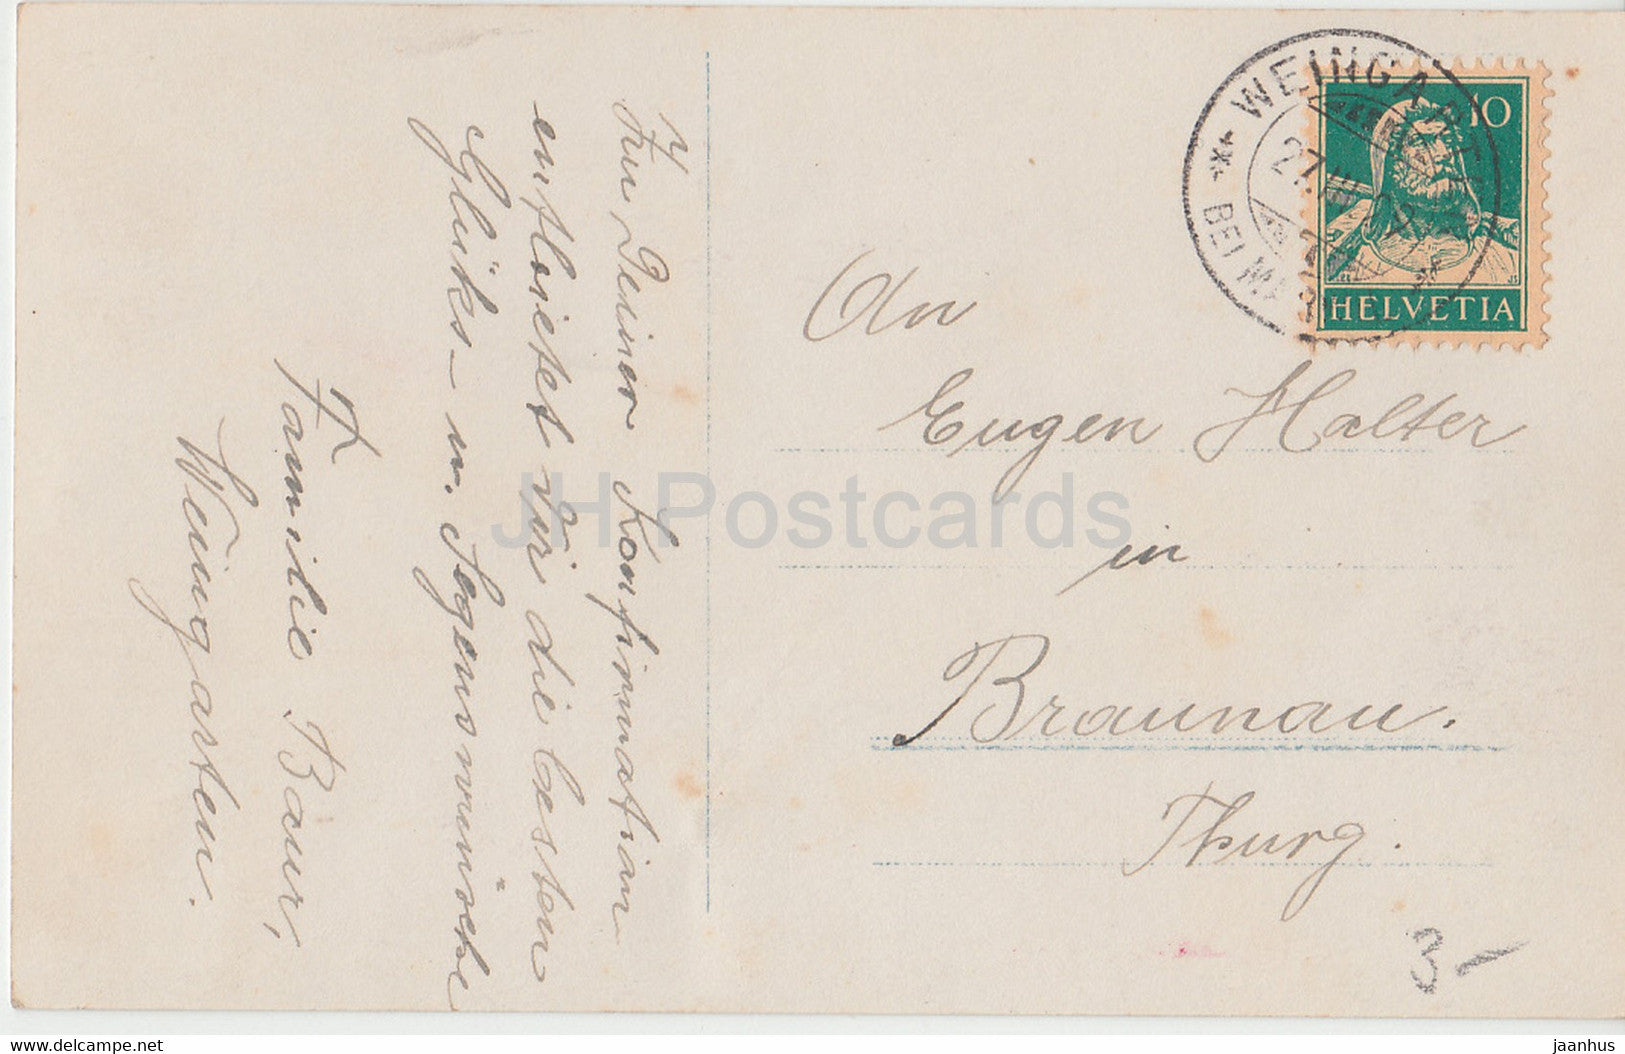 Zu Deiner Konfirmation
entbietet Dir die besten
Glücks- u. Segenswünsche
Familie Baur,
Weingarten.
WEINGARTEN
BEI MA
27. III
10
HELVETIA
An
Eugen Halter
in
Braunau.
Thurg.
3-
JH Postcards
delcampe.net
jaanhus